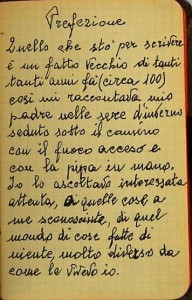 Prefezione
Quello che sto' per scrivere
è un fatto vecchio di tanti
tanti anni fà (circa 100)
cosi mi raccontava mio
padre nelle sere d'inverno
seduto sotto il camino
con il fuoco acceso e
con la pipa in mano.
Io lo ascoltavo interessata
attenta, di quelle cose a
me sconosciute, di quel
mondo di cose fatte di
niente, molto diverso da
come lo vivevo io.